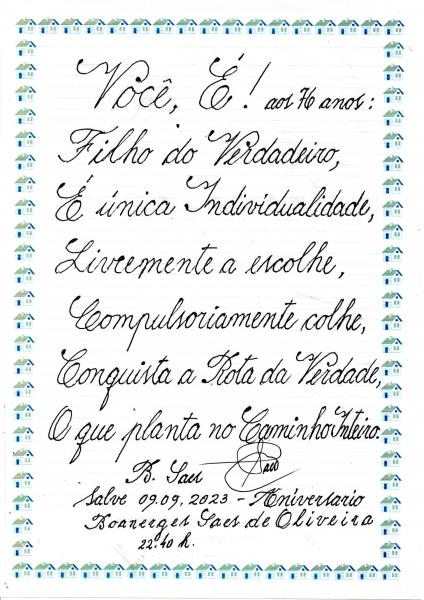 Você, É! aos 76 anos:
Filho do Verdadeiro,
É única Individualidade,
Livremente a escolhe,
Compulsoriamente colhe,
Conquista a Rota da Verdade,
O que planta no Caminho Inteiro.
B. Saes
Salve 09.09.2023 - Aniversario
Boanerges Saes de Oliveira
22:40 h.